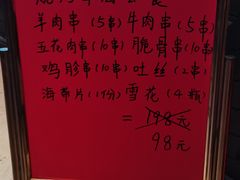 羊肉串(5串)牛肉串(5串)
五花肉串(10串)脆骨串(10串)
鸡胗串(10串)吐丝(2串)
海带片(1份)雪花(4瓶)
=198元
98元